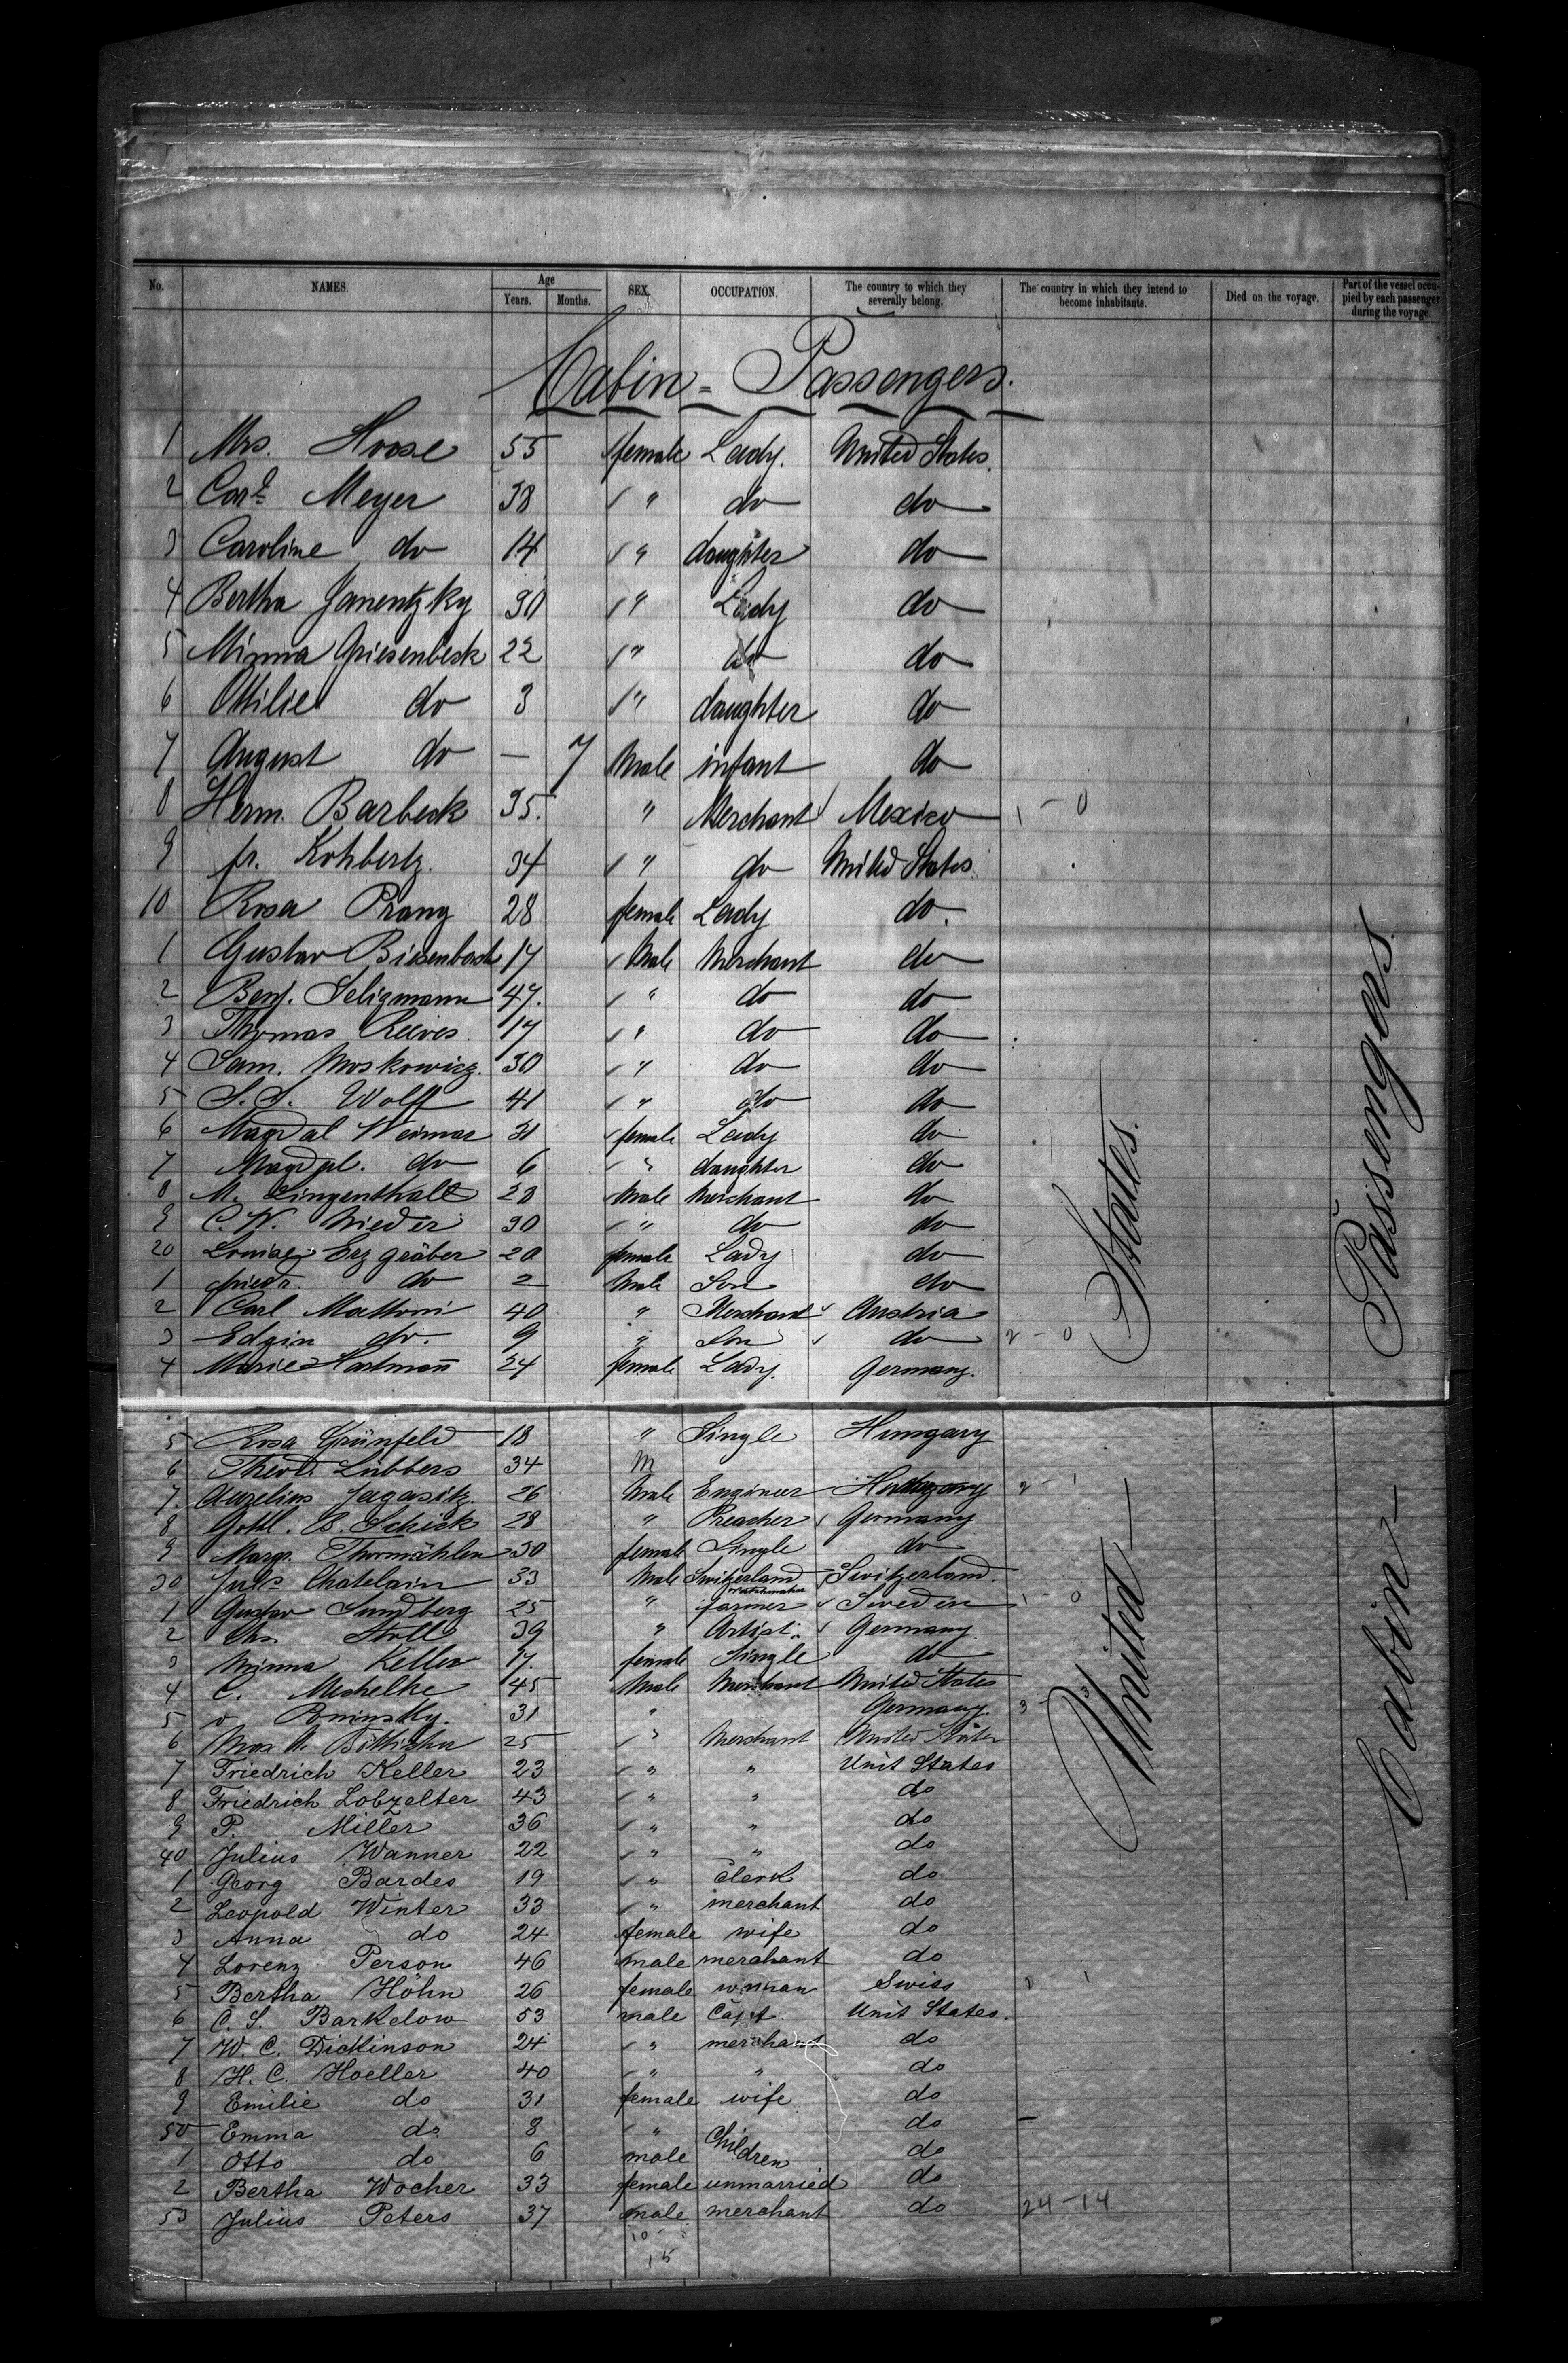 No. NAMES. Age Years. Months. SEX. OCCUPATION. The country to which they severally belong. The country in which they intend to become inhabitants. Died on the voyage. Part of the vessel occupied by each passenger during the voyage.
Cabin = Passengers.
1 Mrs. Hoose 55 female Lady. United States.
2 Carl Meyer 38 " do do
3 Caroline do 14 " daughter do
4 Bertha Janentzky 30 " Lady do
5 Minna Griesenbeck 22 " do do
6 Ottilie do 3 " daughter do
7 August do — 7 Male infant do
8 Herm. Barbeck 35. " Merchant Mexico 1 - 0
9 fr. Kohbertz. 34 " do United States
10 Rosa Prang 28 female Lady do.
1 Gustav Biesenbach 17 Male Merchant do
2 Benj. Seligmann 47. " do do
3 Thomas Reeves 17 " do do
4 Sam. Moskowicz. 30 " do do
5 S. S. Wolff 41 " do do
6 Magdal Weimar 31 female Lady do
7 Magdal. do 6 " daughter do
8 M. Lingenthalt 28 Male Merchant do
9 C. W. Nieder 30 " do do
20 Louise Erzgräber 20 female Lady do
1 friedr. do 2 Male Son do
2 Carl Mattoni 40 " Merchant Austria
3 Edgin do. 9 " Son do 2 - 0
4 Marie Hartmann 24 female Lady. Germany.
5 Rosa Grünfeld 18 " Single Hungary
6 Theod. Lübbers 34 m
7. Aurelius Jagasitz. 26 Male Engineer Hungary 2 - 1
8 Gottl. B. Schick 28 " Preacher Germany
9 Marg. Thormählen 30 female Single do
30 Juls Chatelain 33 Male Switzerland watchmaker Switzerland.
1 Gustav Sundberg 25 " farmer Sweden 1 - 0
2 Chs Stoll 39 " Artist. Germany
3 Minna Keller 17. female Single do
4 C. Mechelke 45 Male Merchant United States
5 v Poninsky. 31 " Germany. 3 - 3
6 Max A. Böttischer 25 " Merchant United States
7 Friedrich Keller 23 " " Unit States
8 Friedrich Lobzelter 43 " " do
9 P. Miller 36 " " do
40 Julius Wanner 22 " " do
1 Georg Bardes 19 " Clerk do
2 Leopold Winter 33 " merchant do
3 Anna do 24 female wife do
4 Lorenz Person 46 male merchant do
5 Bertha Höhn 26 female woman Swiss 1 1
6 C. S. Barkelow 53 male Capt. Unit States.
7 W. C. Dickinson 24 " merchant do
8 H. C. Hoeller 40 " " do
9 Emilie do 31 female wife do
50 Emma do 8 " Children do
1 Otto do 6 male do
2 Bertha Wocher 33 female unmarried do
53 Julius Peters 37 male merchant do 24-14
10
15
United States.
Cabin Passengers.